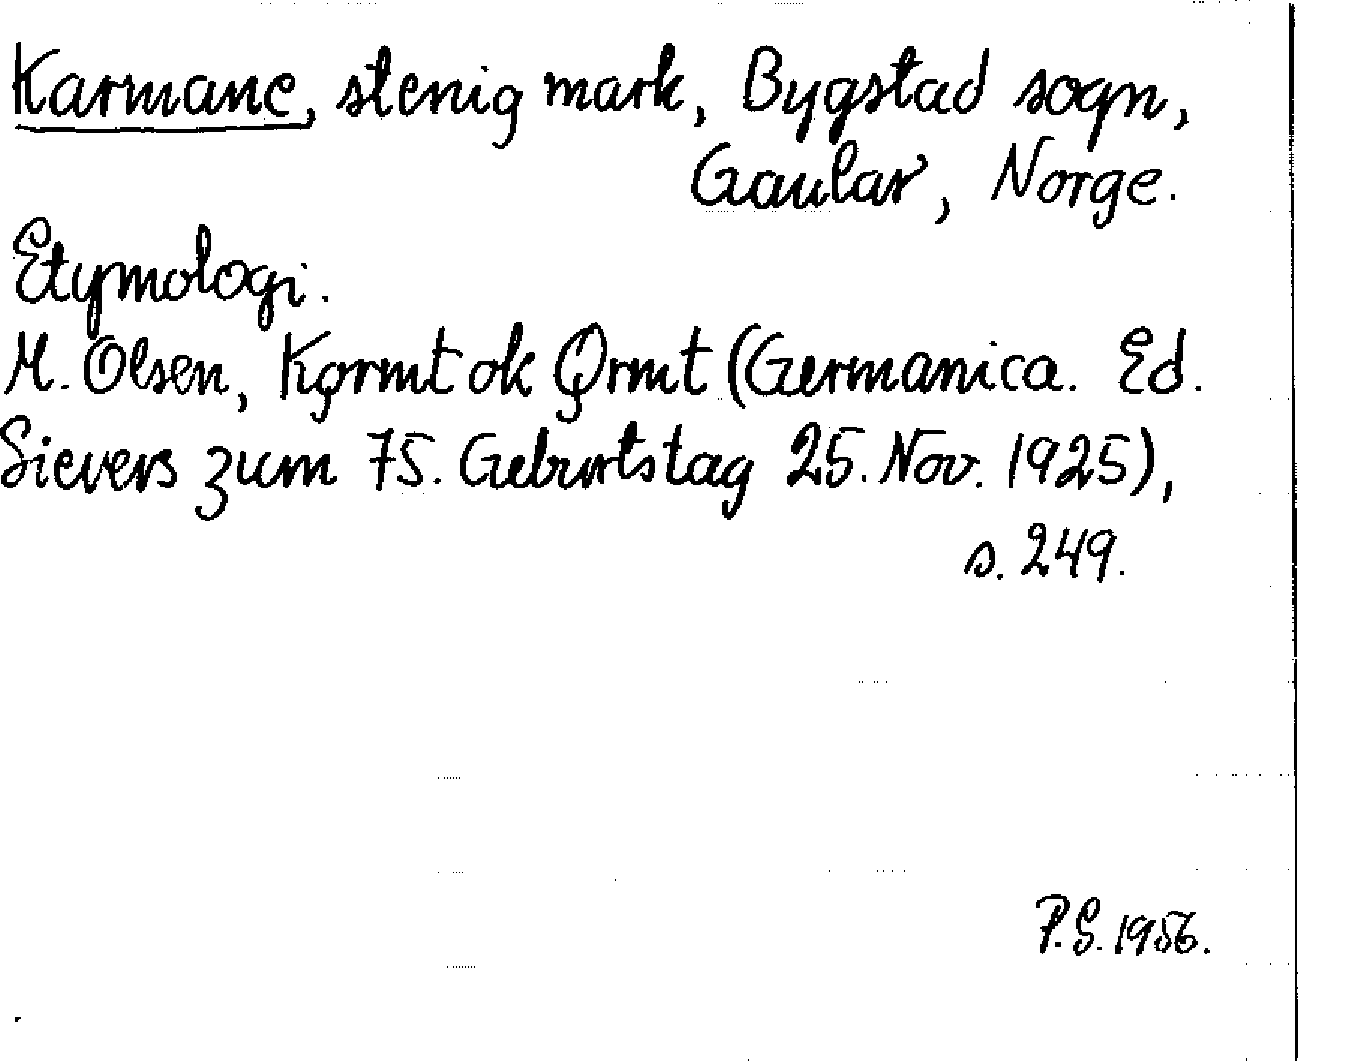 Karmane, stenig mark, Bygstad sogn,
Gaular, Norge.
Etymologi.
M. Olsen, Kǫrmt ok Ǫrmt (Germanica. Ed.
Sievers zum 75. Geburtstag 25. Nov. 1925),
s. 249.
P.S. 1956.